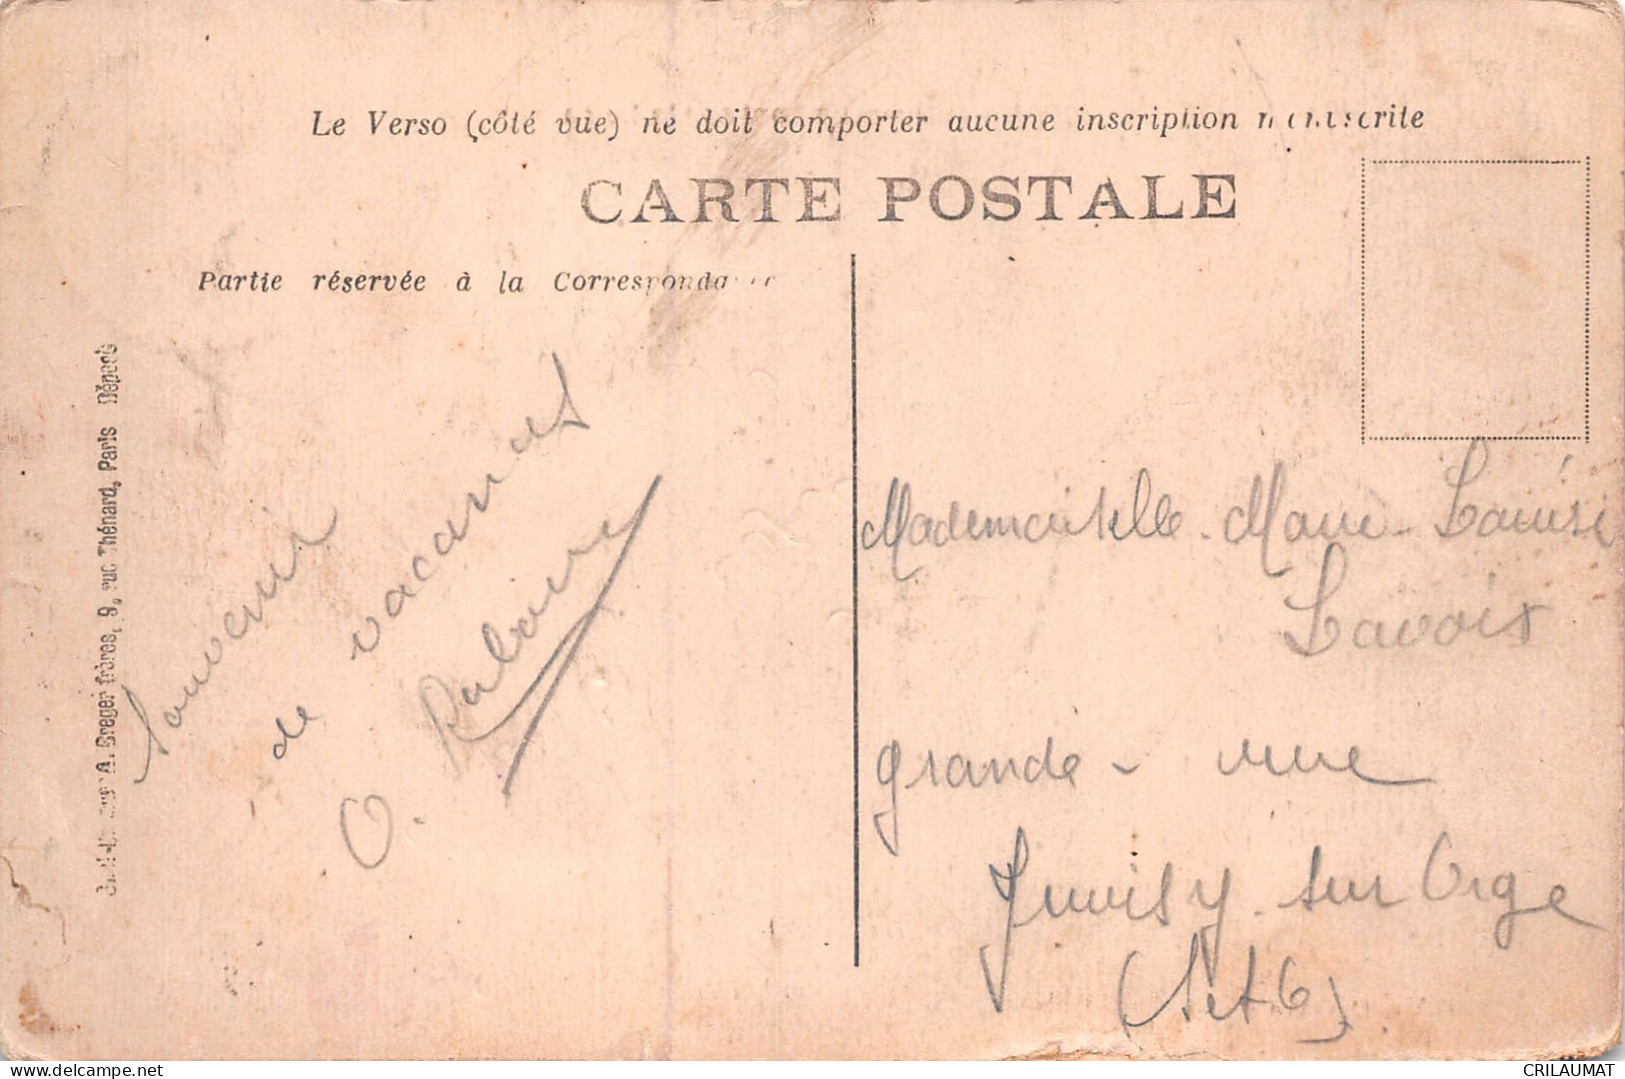 Le Verso (côté vue) ne doit comporter aucune inscription manuscrite
CARTE POSTALE
Partie réservée à la Correspondance
A. Breger frères, 9, rue Thénard, Paris Déposé
Souvenir
de vacances
O.
Mademoiselle Marie-Louise
Lavoix
grande-rue
Juvisy-sur Orge
(S et O)
CRILAUMAT